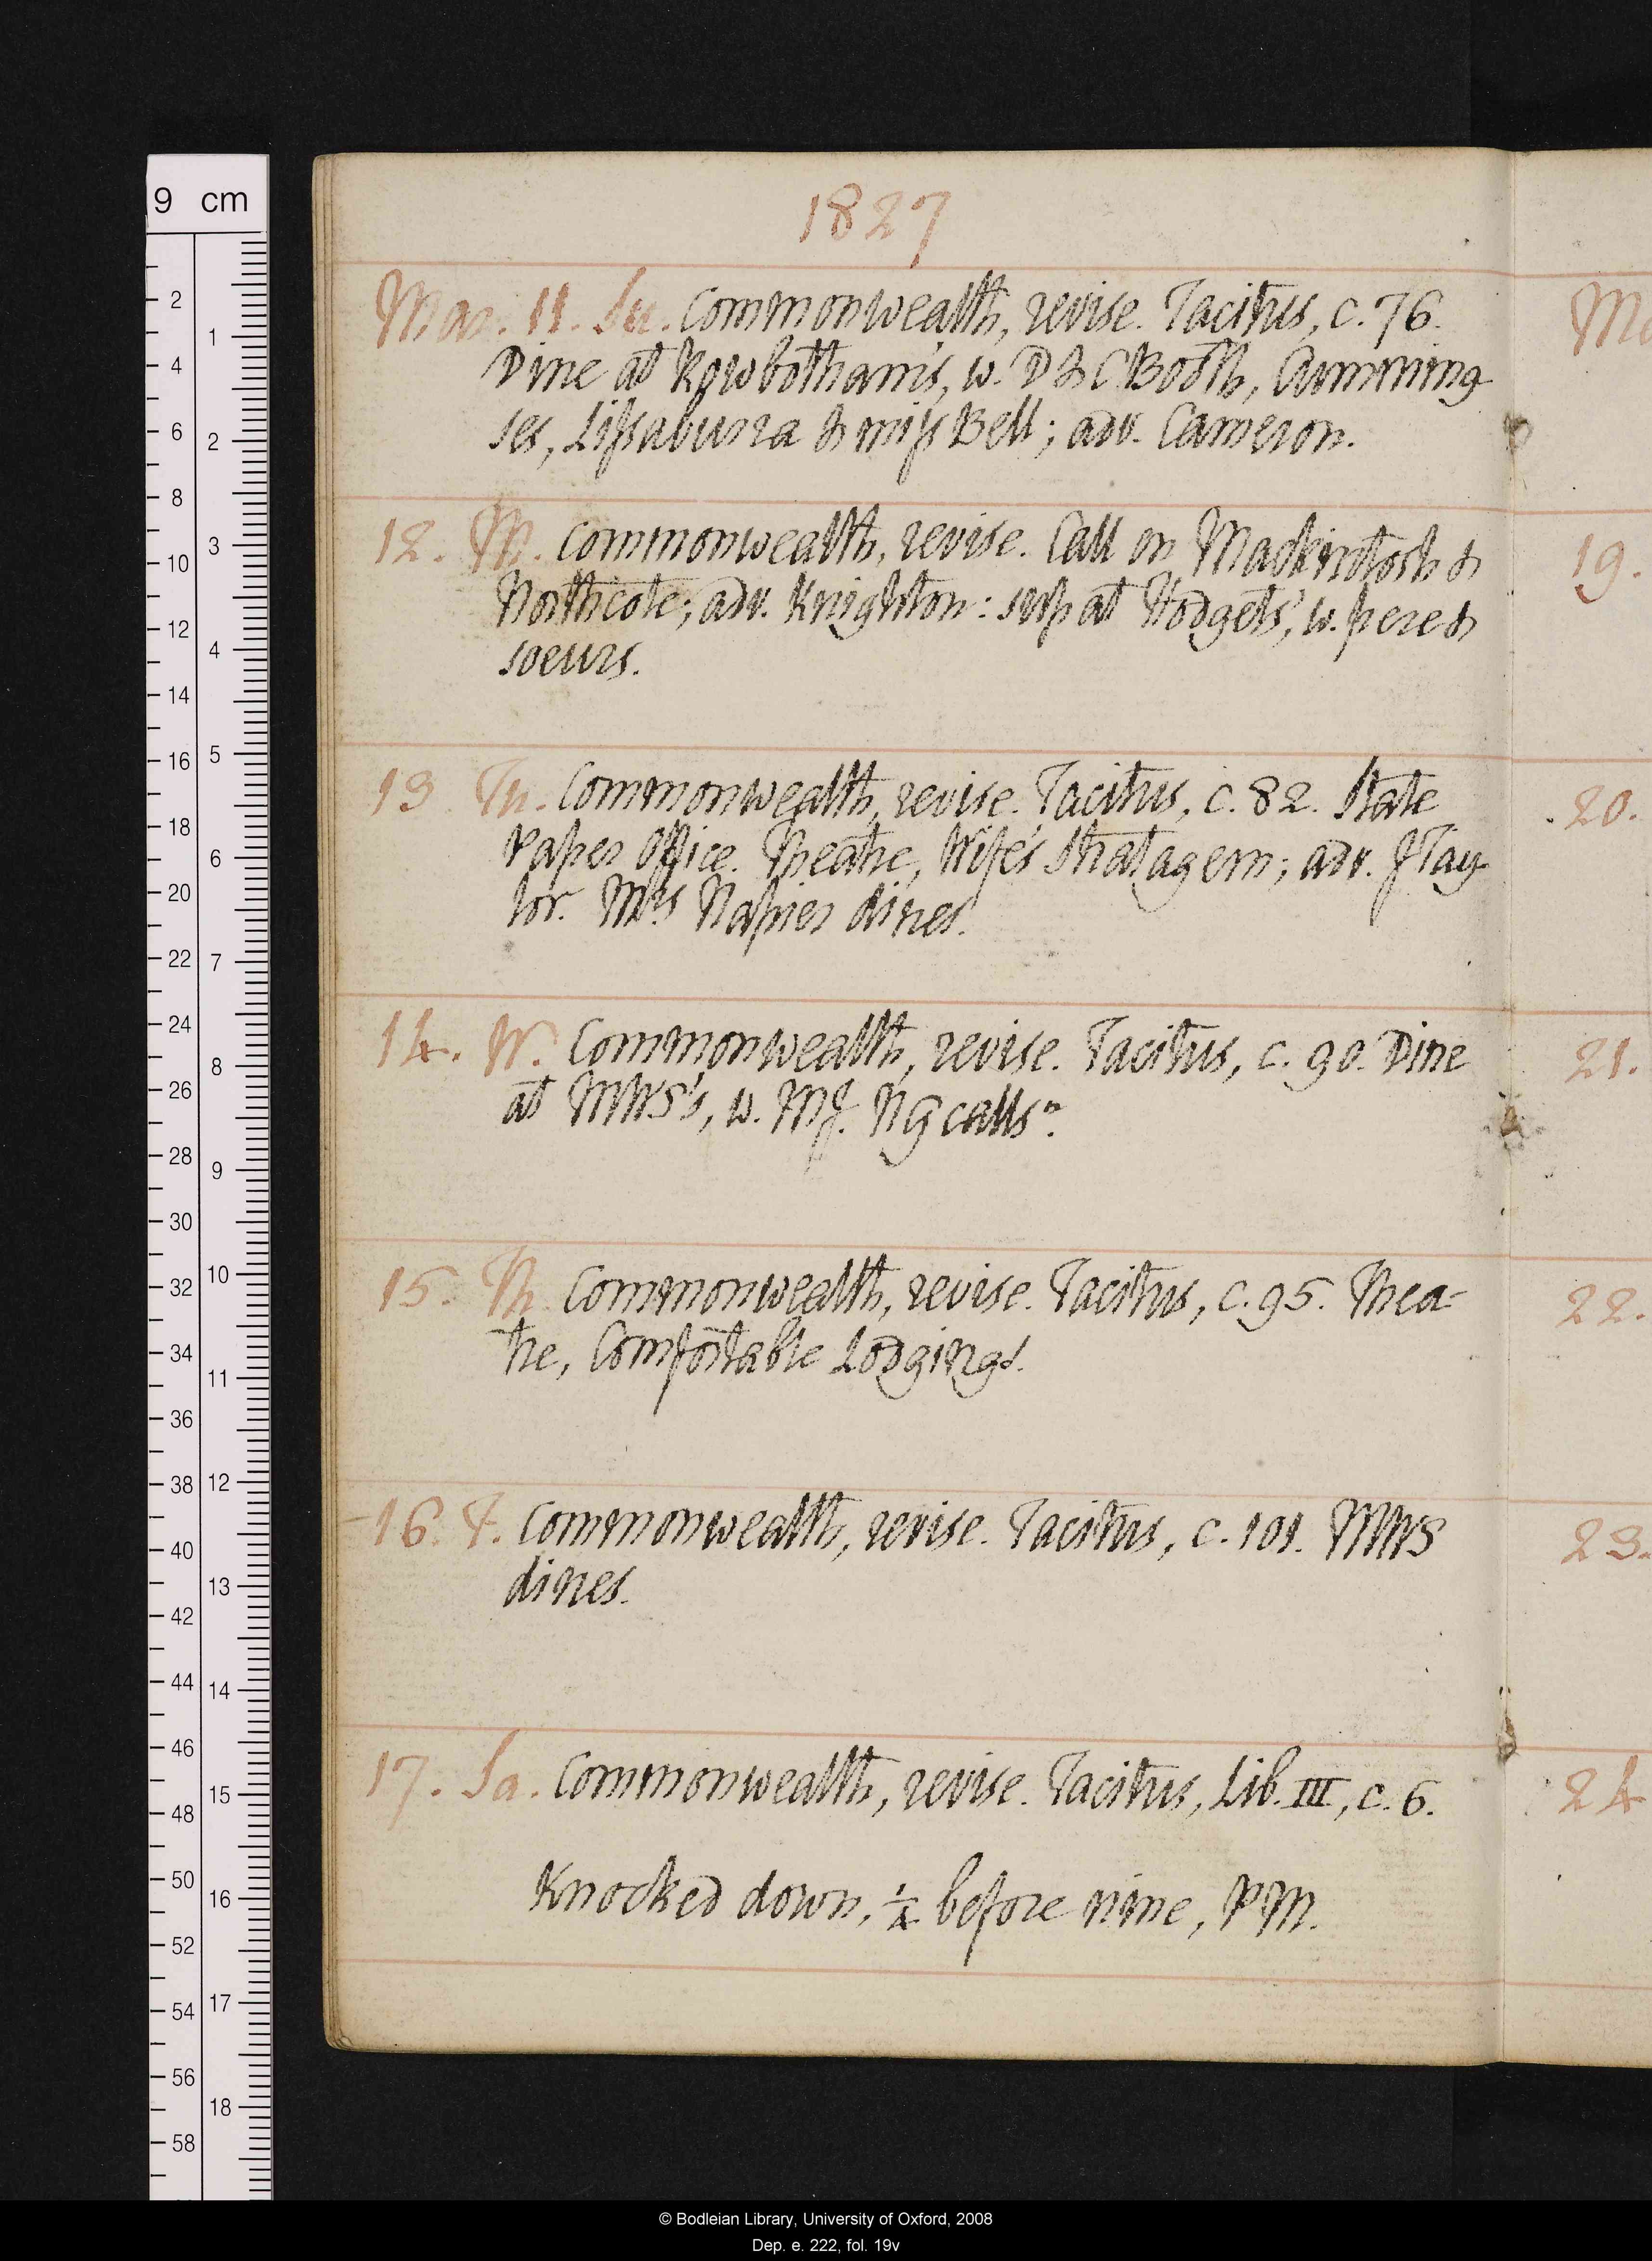 1827
Mar. 11. Su. Commonwealth, revise. Tacitus, c. 76.
Dine at Rowbotham's, w. D & C Booth, Cumming-
ses, Lissaburra & miss Bell; adv. Cameron.
12. M. Commonwealth, revise. Call on Mackintosh &
Northcote; adv. Knighton: sup at Hodgets', w. pere &
soeurs.
13 Tu. Commonwealth, revise. Tacitus, c. 82. State
Paper Office. Theatre, Wife's Stratagem; adv. J Tay-
lor. Mrs Napier dines.
14. W. Commonwealth, revise. Tacitus, c. 90. Dine
at MWS's, w. MJ. NG calls n.
15. Th. Commonwealth, revise. Tacitus, c. 95. Thea-
tre, Comfortable Lodgings.
16. F. Commonwealth, revise. Tacitus, c. 101. MWS
dines.
17. Sa. Commonwealth, revise. Tacitus, Lib. III, c. 6.
Knocked down, 1/4 before nine, PM.
19.
20.
21.
22.
23.
24
9 cm
2
4
6
8
10
12
14
16
18
20
22
24
26
28
30
32
34
36
38
40
42
44
46
48
50
52
54
56
58
1
2
3
4
5
6
7
8
9
10
11
12
13
14
15
16
17
18
© Bodleian Library, University of Oxford, 2008
Dep. e. 222, fol. 19v